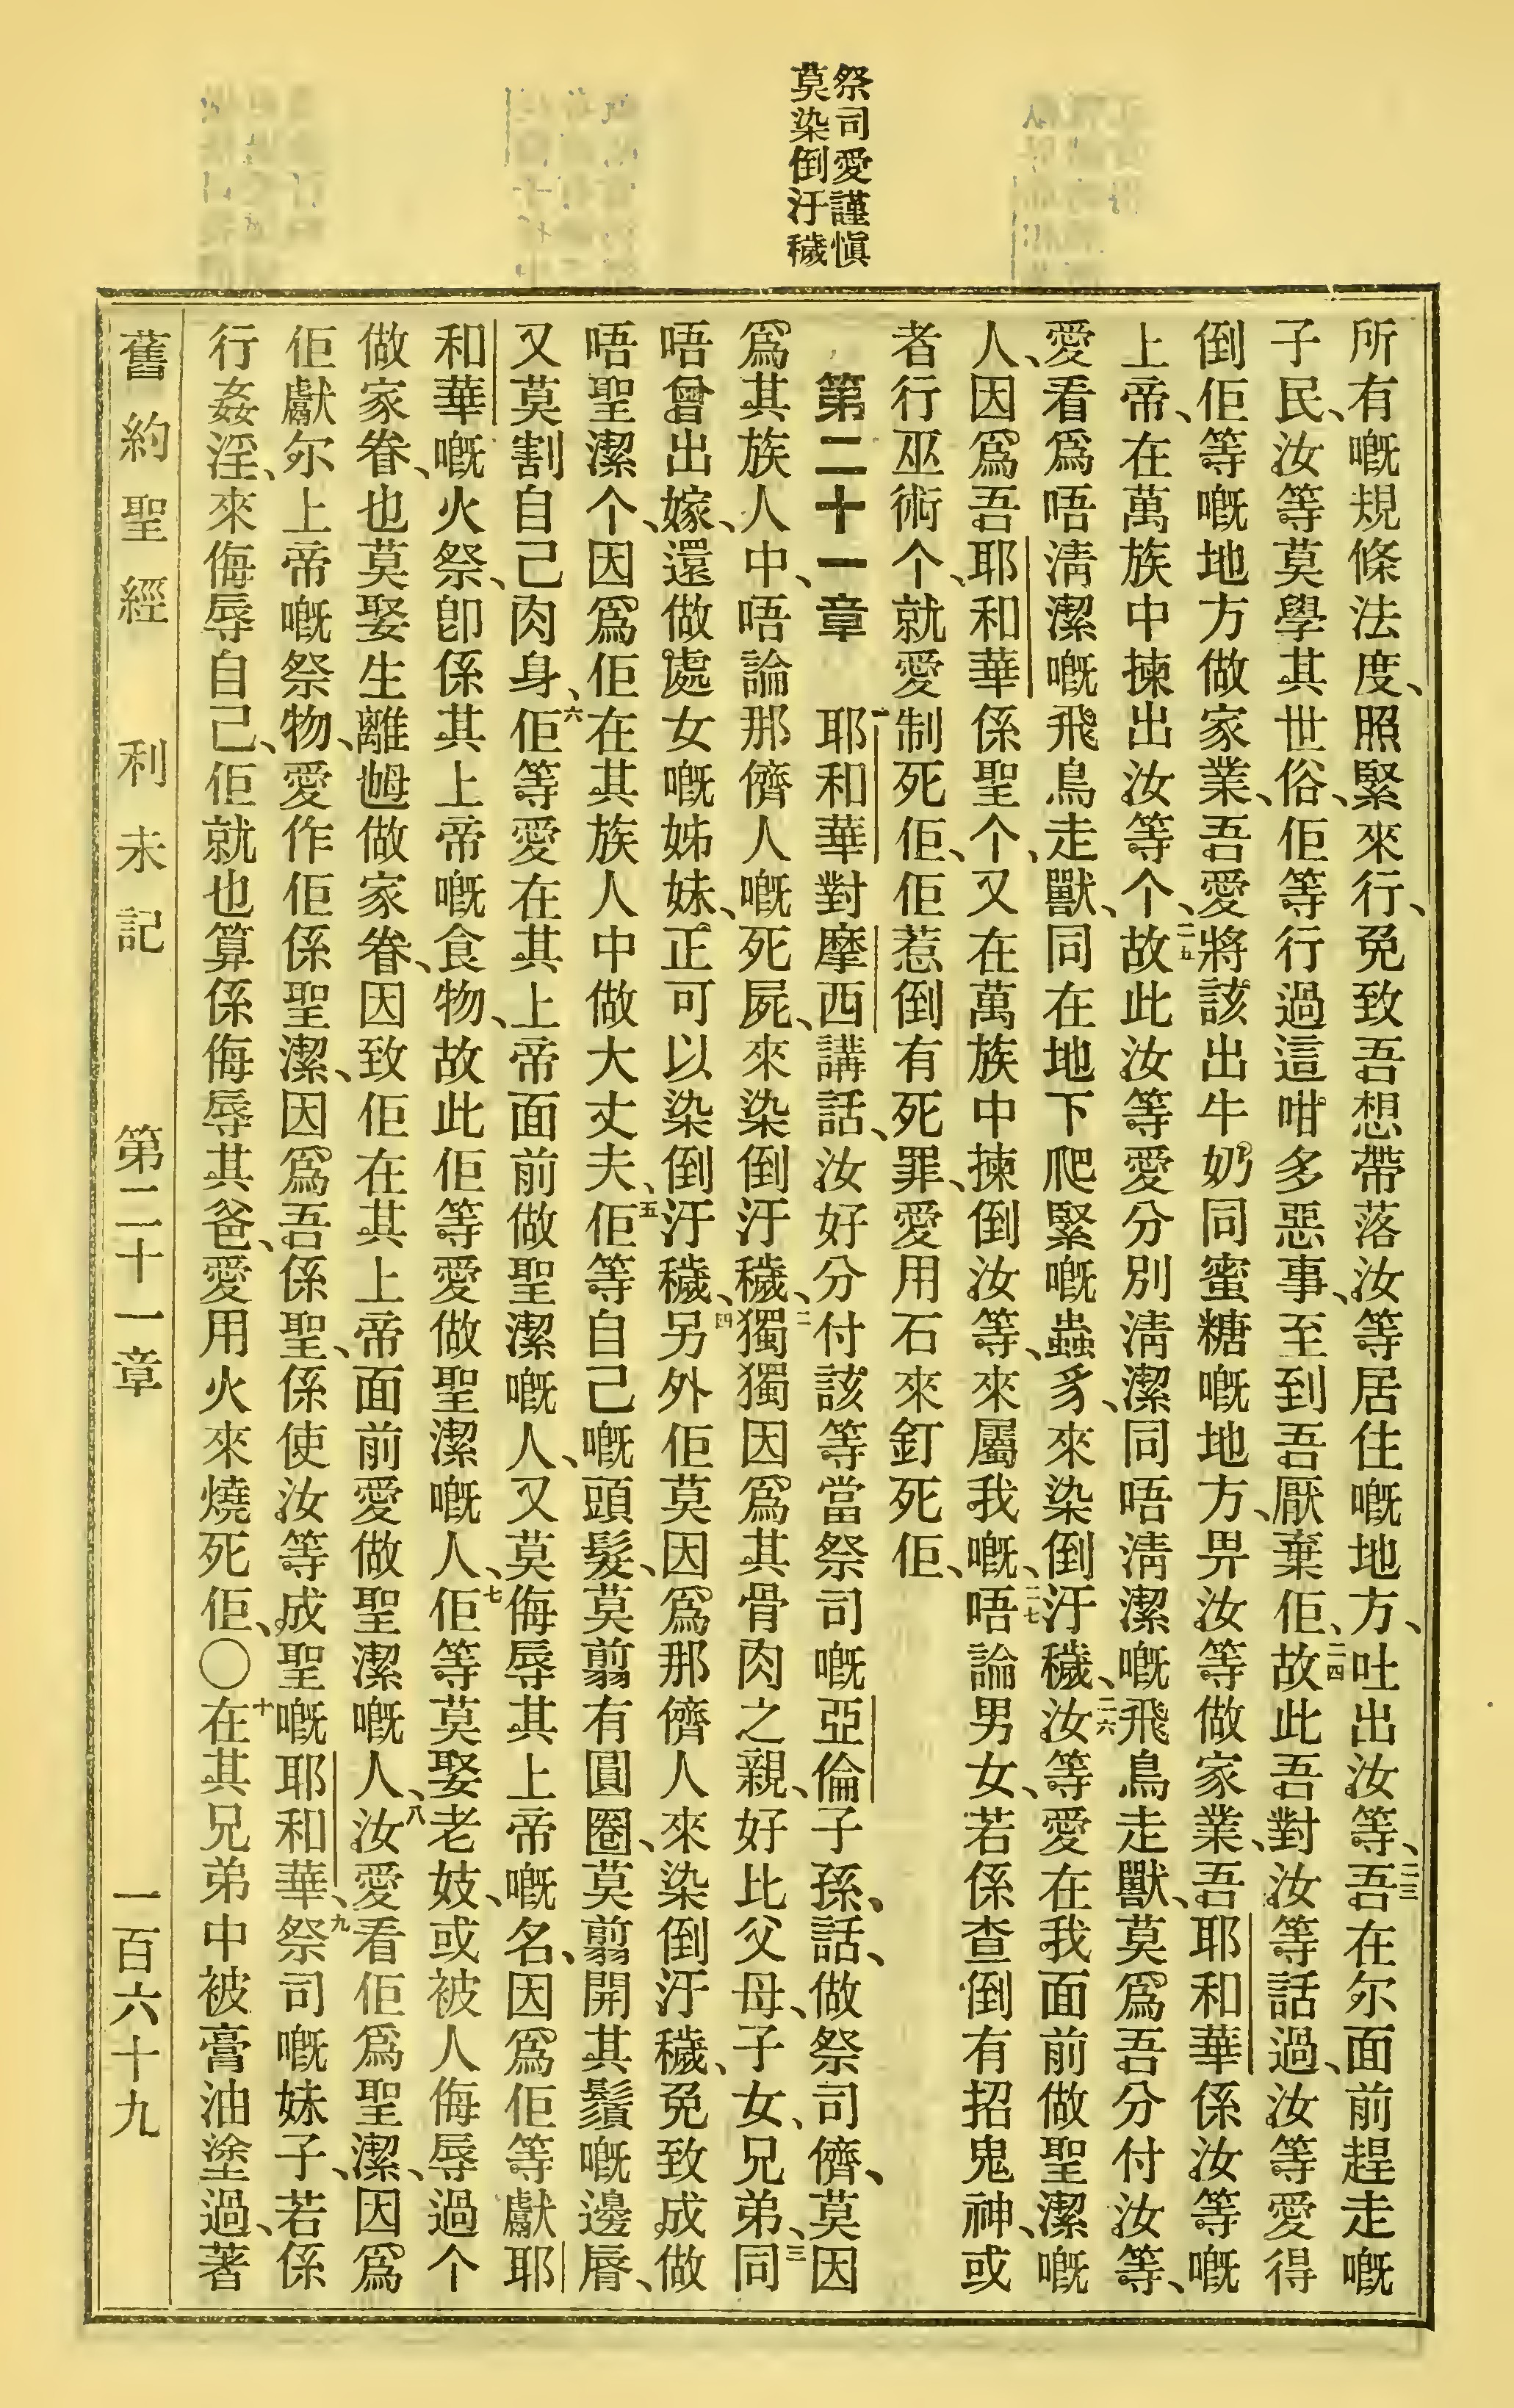 祭司愛謹愼
莫染倒汙穢
所有嘅規條法度、照緊來行、免致吾想帶落汝等居住嘅地方、吐出汝等、二三吾在尔面前趕走嘅
子民、汝等莫學其世俗、佢等行過這咁多惡事、至到吾厭棄佢、二四故此吾對汝等話過、汝等愛得
倒佢等嘅地方做家業、吾愛將該出牛奶同蜜糖嘅地方、畀汝等做家業、吾耶和華係汝等嘅
上帝、在萬族中揀出汝等个、二五故此汝等愛分別清潔同唔清潔嘅飛鳥走獸、莫爲吾分付汝等、
愛看爲唔清潔嘅飛鳥走獸、同在地下爬緊嘅蟲豸、來染倒汙穢、二六汝等愛在我面前做聖潔嘅
人、因爲吾耶和華係聖个、又在萬族中揀倒汝等、來屬我嘅、二七唔論男女、若係查倒有招鬼神、或
者行巫術个、就愛制死佢、佢惹倒有死罪、愛用石來釘死佢、
第二十一章 一耶和華對摩西講話、汝好分付該等當祭司嘅亞倫子孫、話、做祭司儕、莫因
爲其族人中、唔論那儕人嘅死屍、來染倒汙穢、二獨獨因爲其骨肉之親、好比父母、子女、兄弟、三同
唔曾出嫁、還做處女嘅姊妹、正可以染倒汙穢、四另外佢莫因爲那儕人來染倒汙穢、免致成做
唔聖潔个、因爲佢在其族人中做大丈夫、五佢等自己嘅頭髮、莫翦有圓圈、莫翦開其鬚嘅邊脣、
又莫割自己肉身、六佢等愛在其上帝面前做聖潔嘅人、又莫侮辱其上帝嘅名、因爲佢等獻耶
和華嘅火祭、卽係其上帝嘅食物、故此佢等愛做聖潔嘅人、七佢等莫娶老妓、或被人侮辱過个
做家眷、也莫娶生離𡜵做家眷、因致佢在其上帝面前愛做聖潔嘅人、八汝愛看佢爲聖潔、因爲
佢獻尔上帝嘅祭物、愛作佢係聖潔、因爲吾係聖、係使汝等成聖嘅耶和華、九祭司嘅妹子、若係
行姦淫、來侮辱自己、佢就也算係侮辱其爸、愛用火來燒死佢、〇十在其兄弟中被膏油塗過、著
舊約聖經 利未記 第二十一章 一百六十九